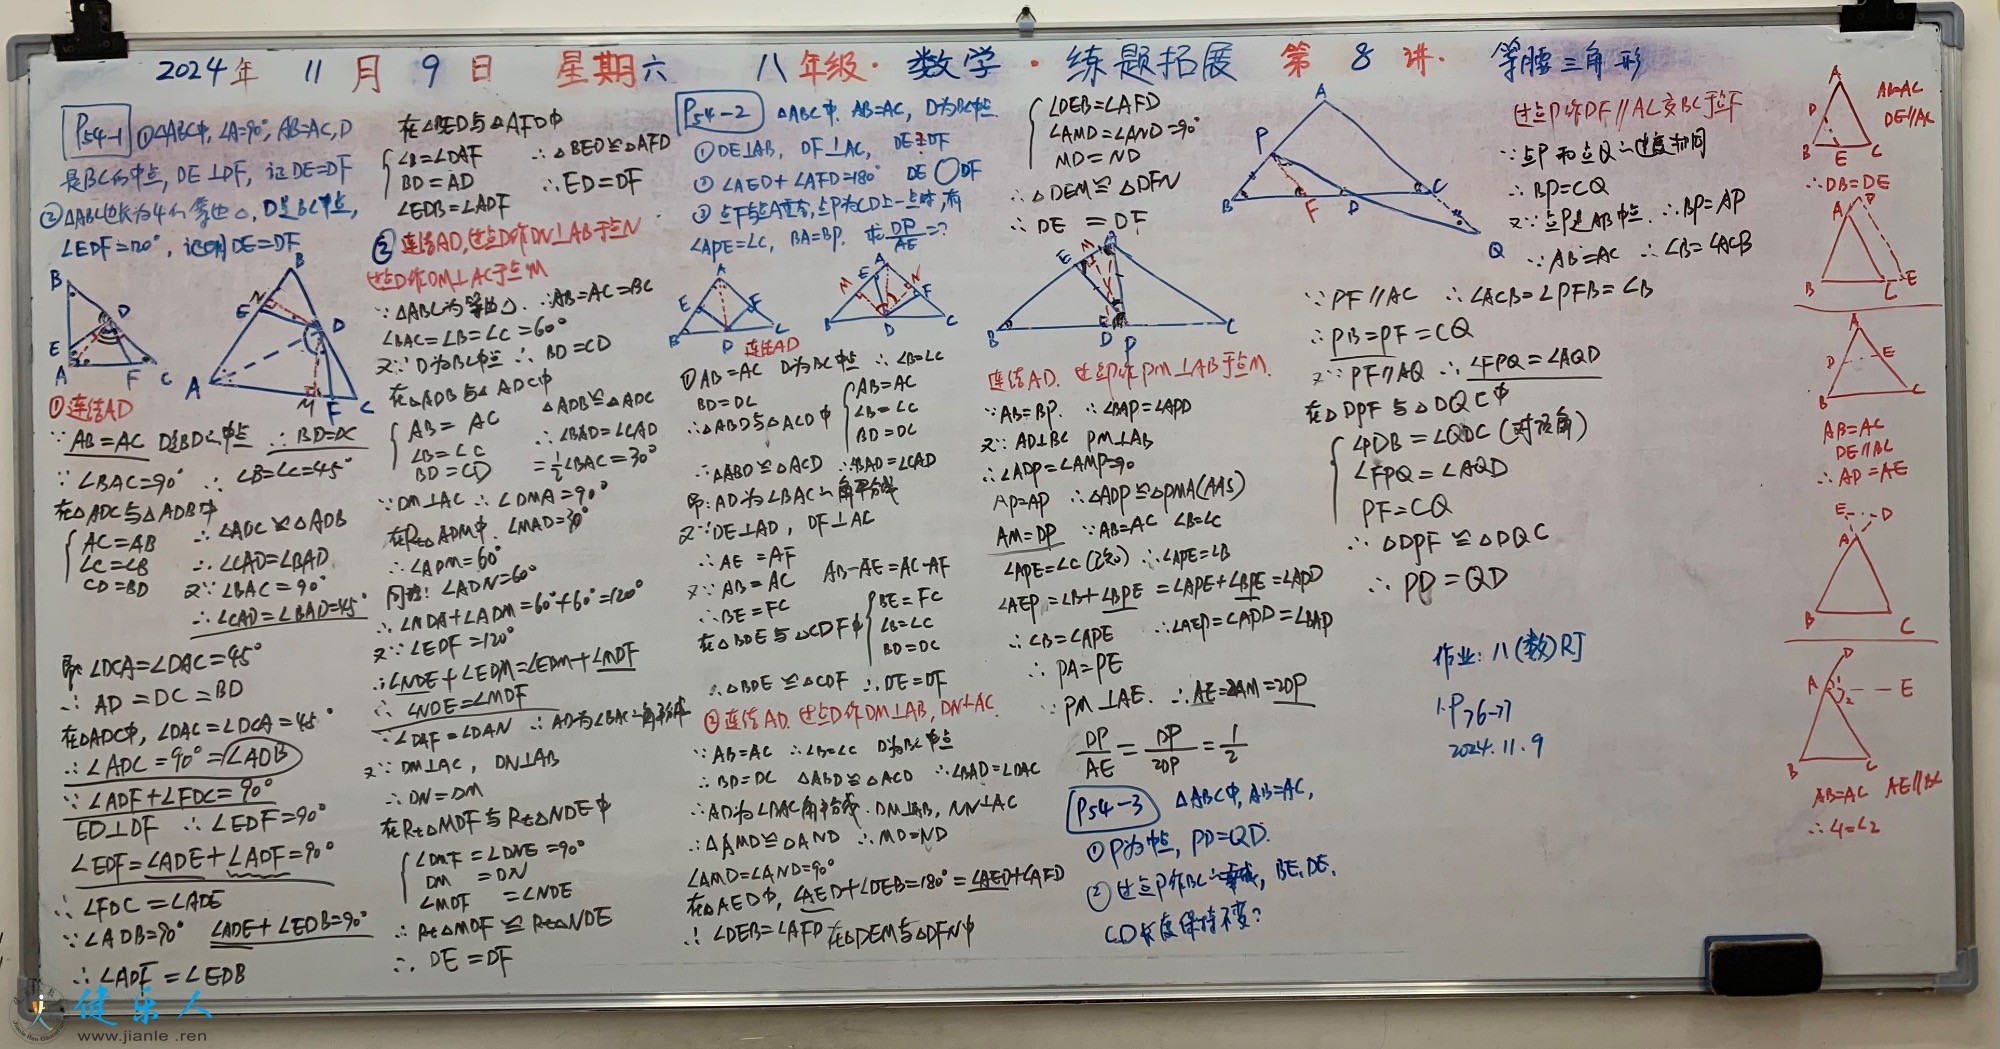 2024年 11月 9日 星期六 八年级·数学·练题拓展 第8讲· 等腰三角形
P54-1 ①△ABC中,∠A=90°,AB=AC,D
是BC的中点,DE⊥DF,证DE=DF
②△ABC边长为4的等边△,D是BC中点,
∠EDF=120°,证明DE=DF
B
D
E
A
F
C
B
N
E
D
A
M
F
C
①连结AD
∵AB=AC D是BD的中点 ∴BD=DC
∵∠BAC=90° ∴∠B=∠C=45°
在△ADC与△ADB中
AC=AB
∠C=∠B
CD=BD
∴△ADC≌△ADB
∴∠CAD=∠BAD
又∵∠BAC=90°
∴∠CAD=∠BAD=45°
即:∠DCA=∠DAC=45°
∴AD=DC=BD
在△ADC中,∠DAC=∠DCA=45°
∴∠ADC=90°=∠ADB
∵∠ADF+∠FDC=90°
ED⊥DF ∴∠EDF=90°
∠EDF=∠ADE+∠ADF=90°
∴∠FDC=∠ADE
∵∠ADB=90° ∠ADE+∠EDB=90°
∴∠ADF=∠EDB
在△BED与△AFD中
∠B=∠DAF
BD=AD
∠EDB=∠ADF
∴△BED≌△AFD
∴ED=DF
②连结AD,过点D作DN⊥AB于点N
过点D作DM⊥AC于点M
∵△ABC为等边△ ∴AB=AC=BC
∠BAC=∠B=∠C=60°
又∵D为BC中点 ∴BD=CD
在△ADB与△ADC中
AB=AC
∠B=∠C
BD=CD
△ADB≌△ADC
∴∠BAD=∠CAD
=½∠BAC=30°
∵DM⊥AC ∴∠DMA=90°
在Rt△ADM中,∠MAD=30°
∴∠ADM=60°
同理:∠ADN=60°
∴∠NDA+∠ADM=60°+60°=120°
又∵∠EDF=120°
∴∠NDE+∠EDM=∠EDM+∠MDF
∴∠NDE=∠MDF
∵∠DAF=∠DAN ∴AD为∠BAC的角平分线
又∵DM⊥AC,DN⊥AB
∴DN=DM
在Rt△MDF与Rt△NDE中
∠DMF=∠DNE=90°
DM=DN
∠MDF=∠NDE
∴Rt△MDF≌Rt△NDE
∴DE=DF
P54-2 △ABC中,AB=AC,D为BC中点
①DE⊥AB,DF⊥AC,DE=DF
②∠AED+∠AFD=180° DE○DF
③点F与点A重合,点P为CD上一点时,有
∠APE=∠C,BA=BP,求DP/AE=?
A
E
F
B
D
C
A
M
E
N
F
B
D
C
连结AD
①AB=AC D为BC中点 ∴∠B=∠C
BD=DC
∴△ABD与△ACD中
AB=AC
∠B=∠C
BD=DC
∴△ABD≌△ACD ∴∠BAD=∠CAD
即:AD为∠BAC的角平分线
又∵DE⊥AD,DF⊥AC
∴AE=AF
又∵AB=AC AB-AE=AC-AF
∴BE=FC
在△BDE与△CDF中
BE=FC
∠B=∠C
BD=DC
∴△BDE≌△CDF ∴DE=DF
②连结AD,过点D作DM⊥AB,DN⊥AC
∵AB=AC ∴∠B=∠C D为BC中点
∴BD=DC △ABD≌△ACD ∴∠BAD=∠DAC
∴AD为∠DAC角平分线 DM⊥AB,NN⊥AC
∴△AMD≌△AND ∴MD=ND
∠AMD=∠AND=90°
在△AED中,∠AED+∠DEB=180°=∠AED+∠AFD
∴∠DEB=∠AFD 在△DEM与△DFN中
∠DEB=∠AFD
∠AMD=∠AND=90°
MD=ND
∴△DEM≌△DFN
∴DE=DF
E
M
B
D
P
C
连结AD,过点P作PM⊥AB于点M.
∵AB=BP. ∴∠BAP=∠APD
又∵AD⊥BC PM⊥AB
∴∠ADP=∠AMP=90
AP=AP ∴△ADP≌△PMA(AAS)
AM=DP ∵AB=AC ∠B=∠C
∠APE=∠C(已知) ∴∠APE=∠B
∠AEP=∠B+∠BPE=∠APE+∠BPE=∠APD
∴∠B=∠APE ∴∠AEP=∠APD=∠BAP
∴PA=PE
∵PM⊥AE. ∴AE=2AM=2DP
DP/AE=DP/2DP=1/2
P54-3 △ABC中,AB=AC,
①P为中点,PD=QD.
②过点P作BC的垂线,BE,DE,
CD长度保持不变?
A
P
B
F
D
C
Q
过点P作DF∥AC交BC于点F
∵点P和点Q的速度相同
∴BP=CQ
又∵点P是AB中点 ∴BP=AP
∵AB=AC ∴∠B=∠ACB
∵PF∥AC ∴∠ACB=∠PFB=∠B
∴PB=PF=CQ
又∵PF∥AQ ∴∠FPQ=∠AQD
在△DPF与△DQC中
∠PDB=∠QDC(对顶角)
∠FPQ=∠AQD
PF=CQ
∴△DPF≌△DQC
∴PD=QD
作业:八(数)RJ
1.P76→77
2024.11.9
A
D
B
E
C
AB=AC
DE∥AC
∴DB=DE
A
D
B
C
E
A
D
E
B
C
AB=AC
DE∥BC
∴AD=AE
E
D
A
B
C
D
A
1
2
E
B
C
AB=AC AE∥BC
∴∠1=∠2
健乐人
www.jianle.ren